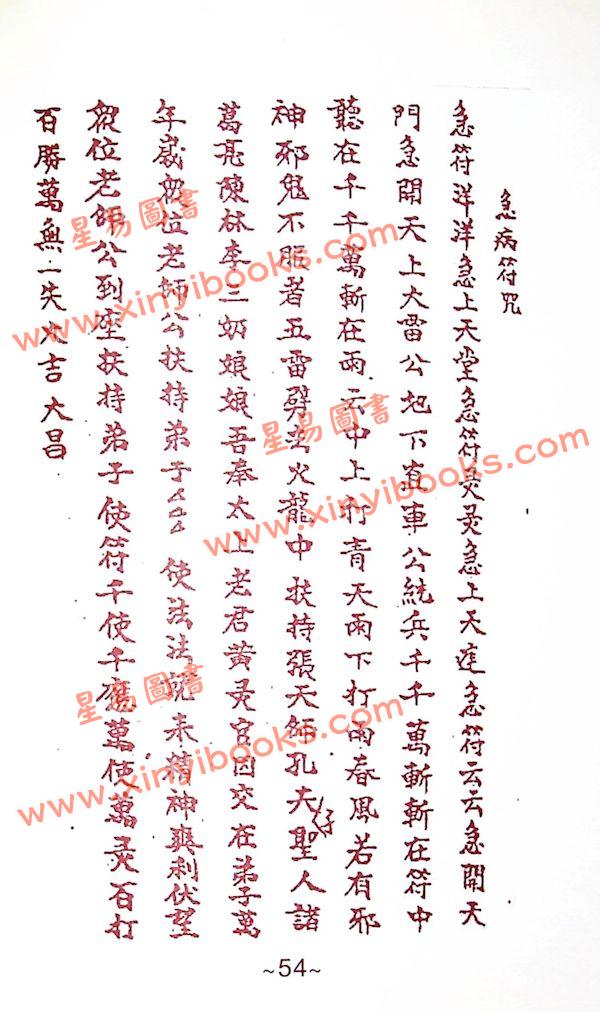 急病符咒
急符洋洋急上天堂急符灵灵急上天庭急符云云急開天
門急開天上大雷公地下直車公統兵千千萬斬斬在符中
聽在千千萬斬在雨云中上打青天雨下打雨春風若有邪
神邪鬼不服者五雷劈在火龍中扶持張天師孔夫仔聖人諸
葛亮陳林李三奶娘娘吾奉太上老君黃灵官因交在弟子萬
年歲眾位老師公扶持弟子厶厶使法法 未精神爽利伏望
眾位老師公到座扶持弟子使符千使千應萬使萬灵百打
百勝萬無一失大吉大昌
~54~
星易圖書
www.xinyibooks.com
星易圖書
www.xinyibooks.com
星易圖書
www.xinyibooks.com